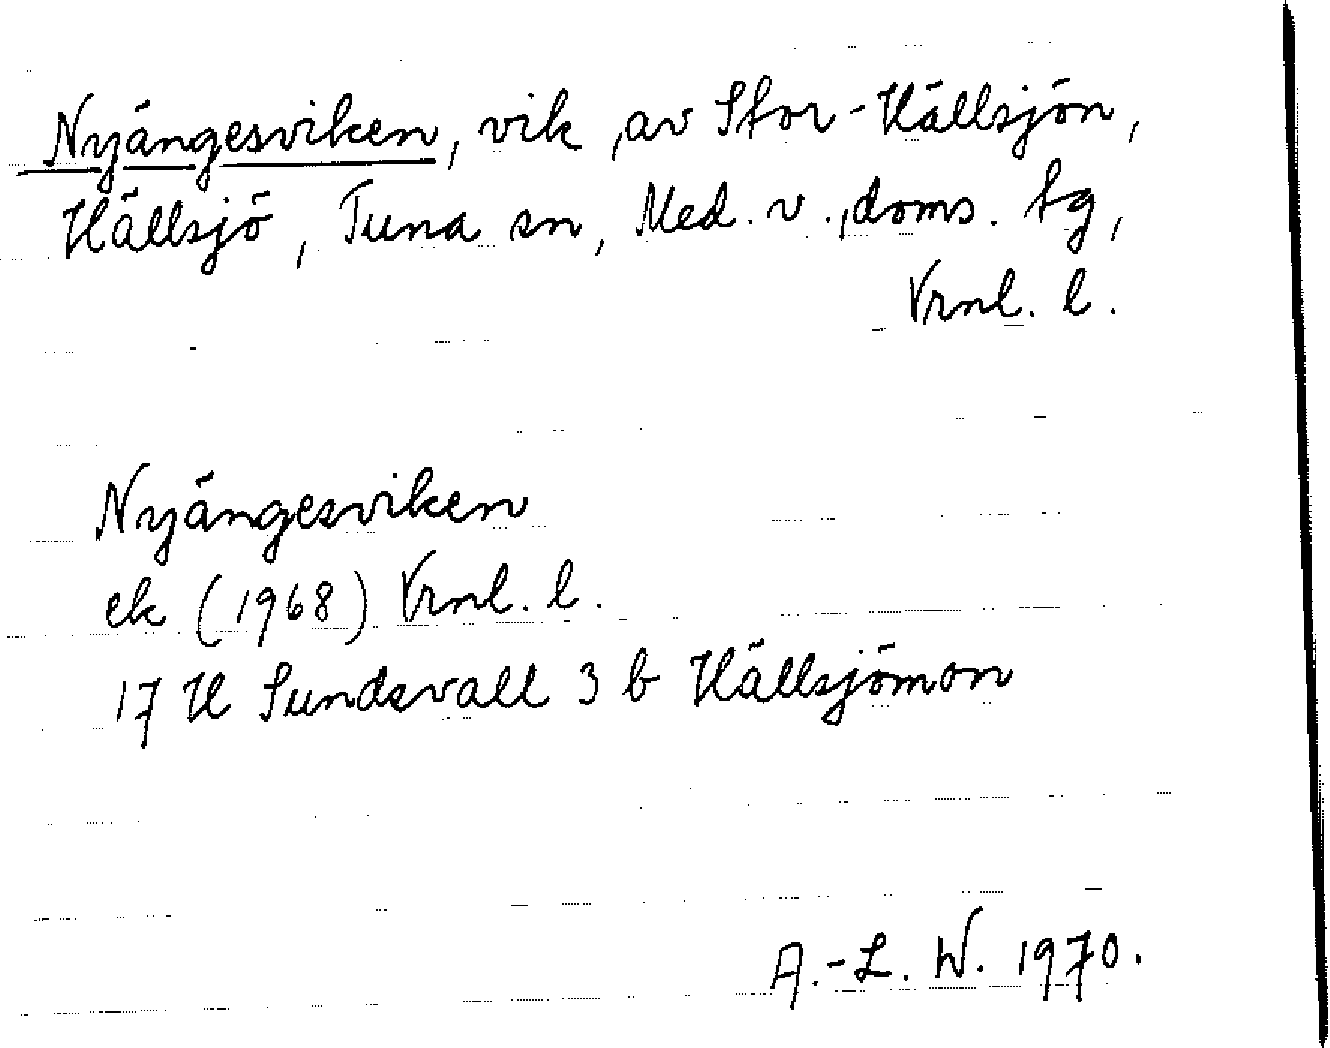 Nyängesviken, vik av Stor-Hällsjön,
Hällsjö, Tuna sn, Med. v. doms. tg,
Vrnl. l.
Nyängesviken
ek (1968) Vrnl. l.
17 H Sundsvall 3 b Hällsjömon
A.-L. W. 1970.